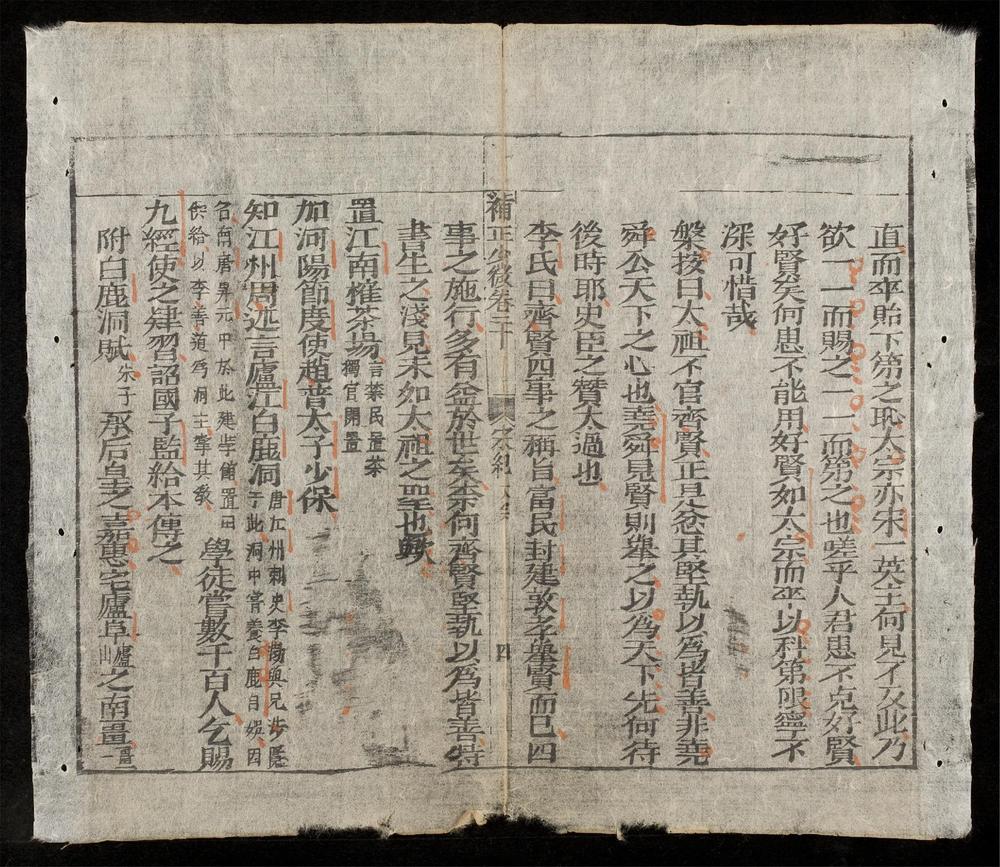 直而卒貽下第之恥太宗亦宋一英主何見不及此乃
欲一一而賜之一一而第之也嗟乎人君患不克好賢
好賢矣何患不能用好賢如太宗而卒以科第限寧不
深可惜哉
槃按曰太祖不官齊賢正是忿其堅執以爲皆善非堯
舜公天下之心也堯舜見賢則舉之以爲天下先何待
後時耶史臣之贊太過也
李氏曰齊賢四事之稱旨富民封建敦孝舉賢而已四
事之施行多有益於世矣柰何齊賢堅執以爲皆善特
書生之淺見未如太祖之聖也歟
補正少微卷二十 宋紀 四
置江南榷茶場言禁民賣茶獨官開置
加河陽節度使趙普太子少保
知江州周述言廬江白鹿洞唐江州刺史李渤與兄涉隱于此洞中嘗養白鹿自娛因
名南唐昇元中於此建學館置田供給以李善道爲洞主掌其敎學徒嘗數千百人乞賜
九經使之肄習詔國子監給本傳之
附白鹿洞賦朱子承后皇之嘉惠宅廬阜廬山之南畺